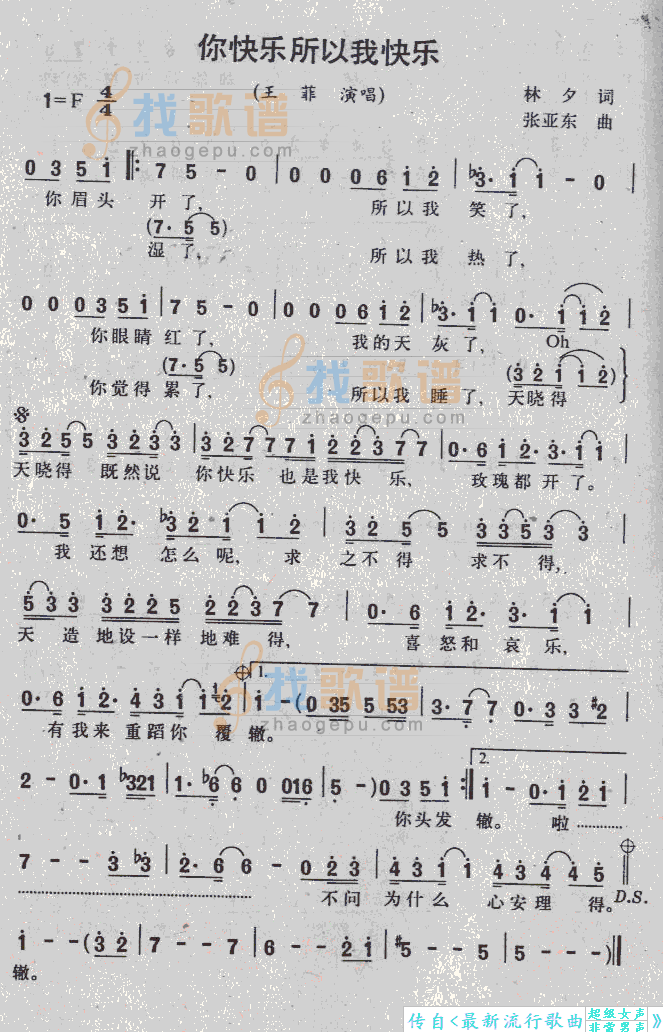 你快乐所以我快乐
(王 菲 演唱)
1=F 4/4
林 夕 词
张亚东 曲
找歌谱
zhaogepu.com
0 3 5 i ‖: 7 5 - 0 | 0 0 0 6 i 2 | b3· i i - 0
你眉头 开了, 所以我 笑了,
(7· 5 5)
湿了, 所以我 热了,
0 0 0 3 5 i | 7 5 - 0 | 0 0 0 6 i 2 | b3· i i 0· i i 2 |
你眼睛 红了, 我的天 灰了, Oh
(7· 5 5) (3 2 i i 2)
你觉得 累了, 所以我 睡了, 天晓得
找歌谱
zhaogepu.com
3 2 5 5 3 2 3 3 | 3 2 7 7 7 i 2 2 3 7 7 | 0· 6 i 2· 3· i i |
天晓得 既然说 你快乐 也是我快 乐, 玫瑰都开了。
0· 5 i 2· b3 2 i i 2 | 3 2 5 5 3 3 5 3 3 |
我还想 怎么呢, 求 之不得 求不得,
5 3 3 3 2 2 5 2 2 3 7 7 | 0· 6 i 2· 3· i i |
天 造 地设一样 地难得, 喜怒和 哀乐,
找歌谱
zhaogepu.com
1.
0· 6 i 2· 4 3 i i 2 | i - (0 35 5 53 | 3· 7 7 0· 3 3 #2
有我来 重蹈你 覆 辙。
2 - 0· 1 b321 | 1· b6 6 0 016 | 5 - ) 0 3 5 i :‖ i - 0· i 2 i |
2.
你头发 辙。 啦…………
7 - - 3 b3 | 2· 6 6 - 0 2 3 | 4 3 i i 4 3 4 4 5 ‖
………… 不问 为什么 心安理 得。
D.S.
i - - (3 2 | 7 - - 7 | 6 - - 2 i | #5 - - - | 5 - - - )‖
辙。
传自<最新流行歌曲 超级女声 非常男声》